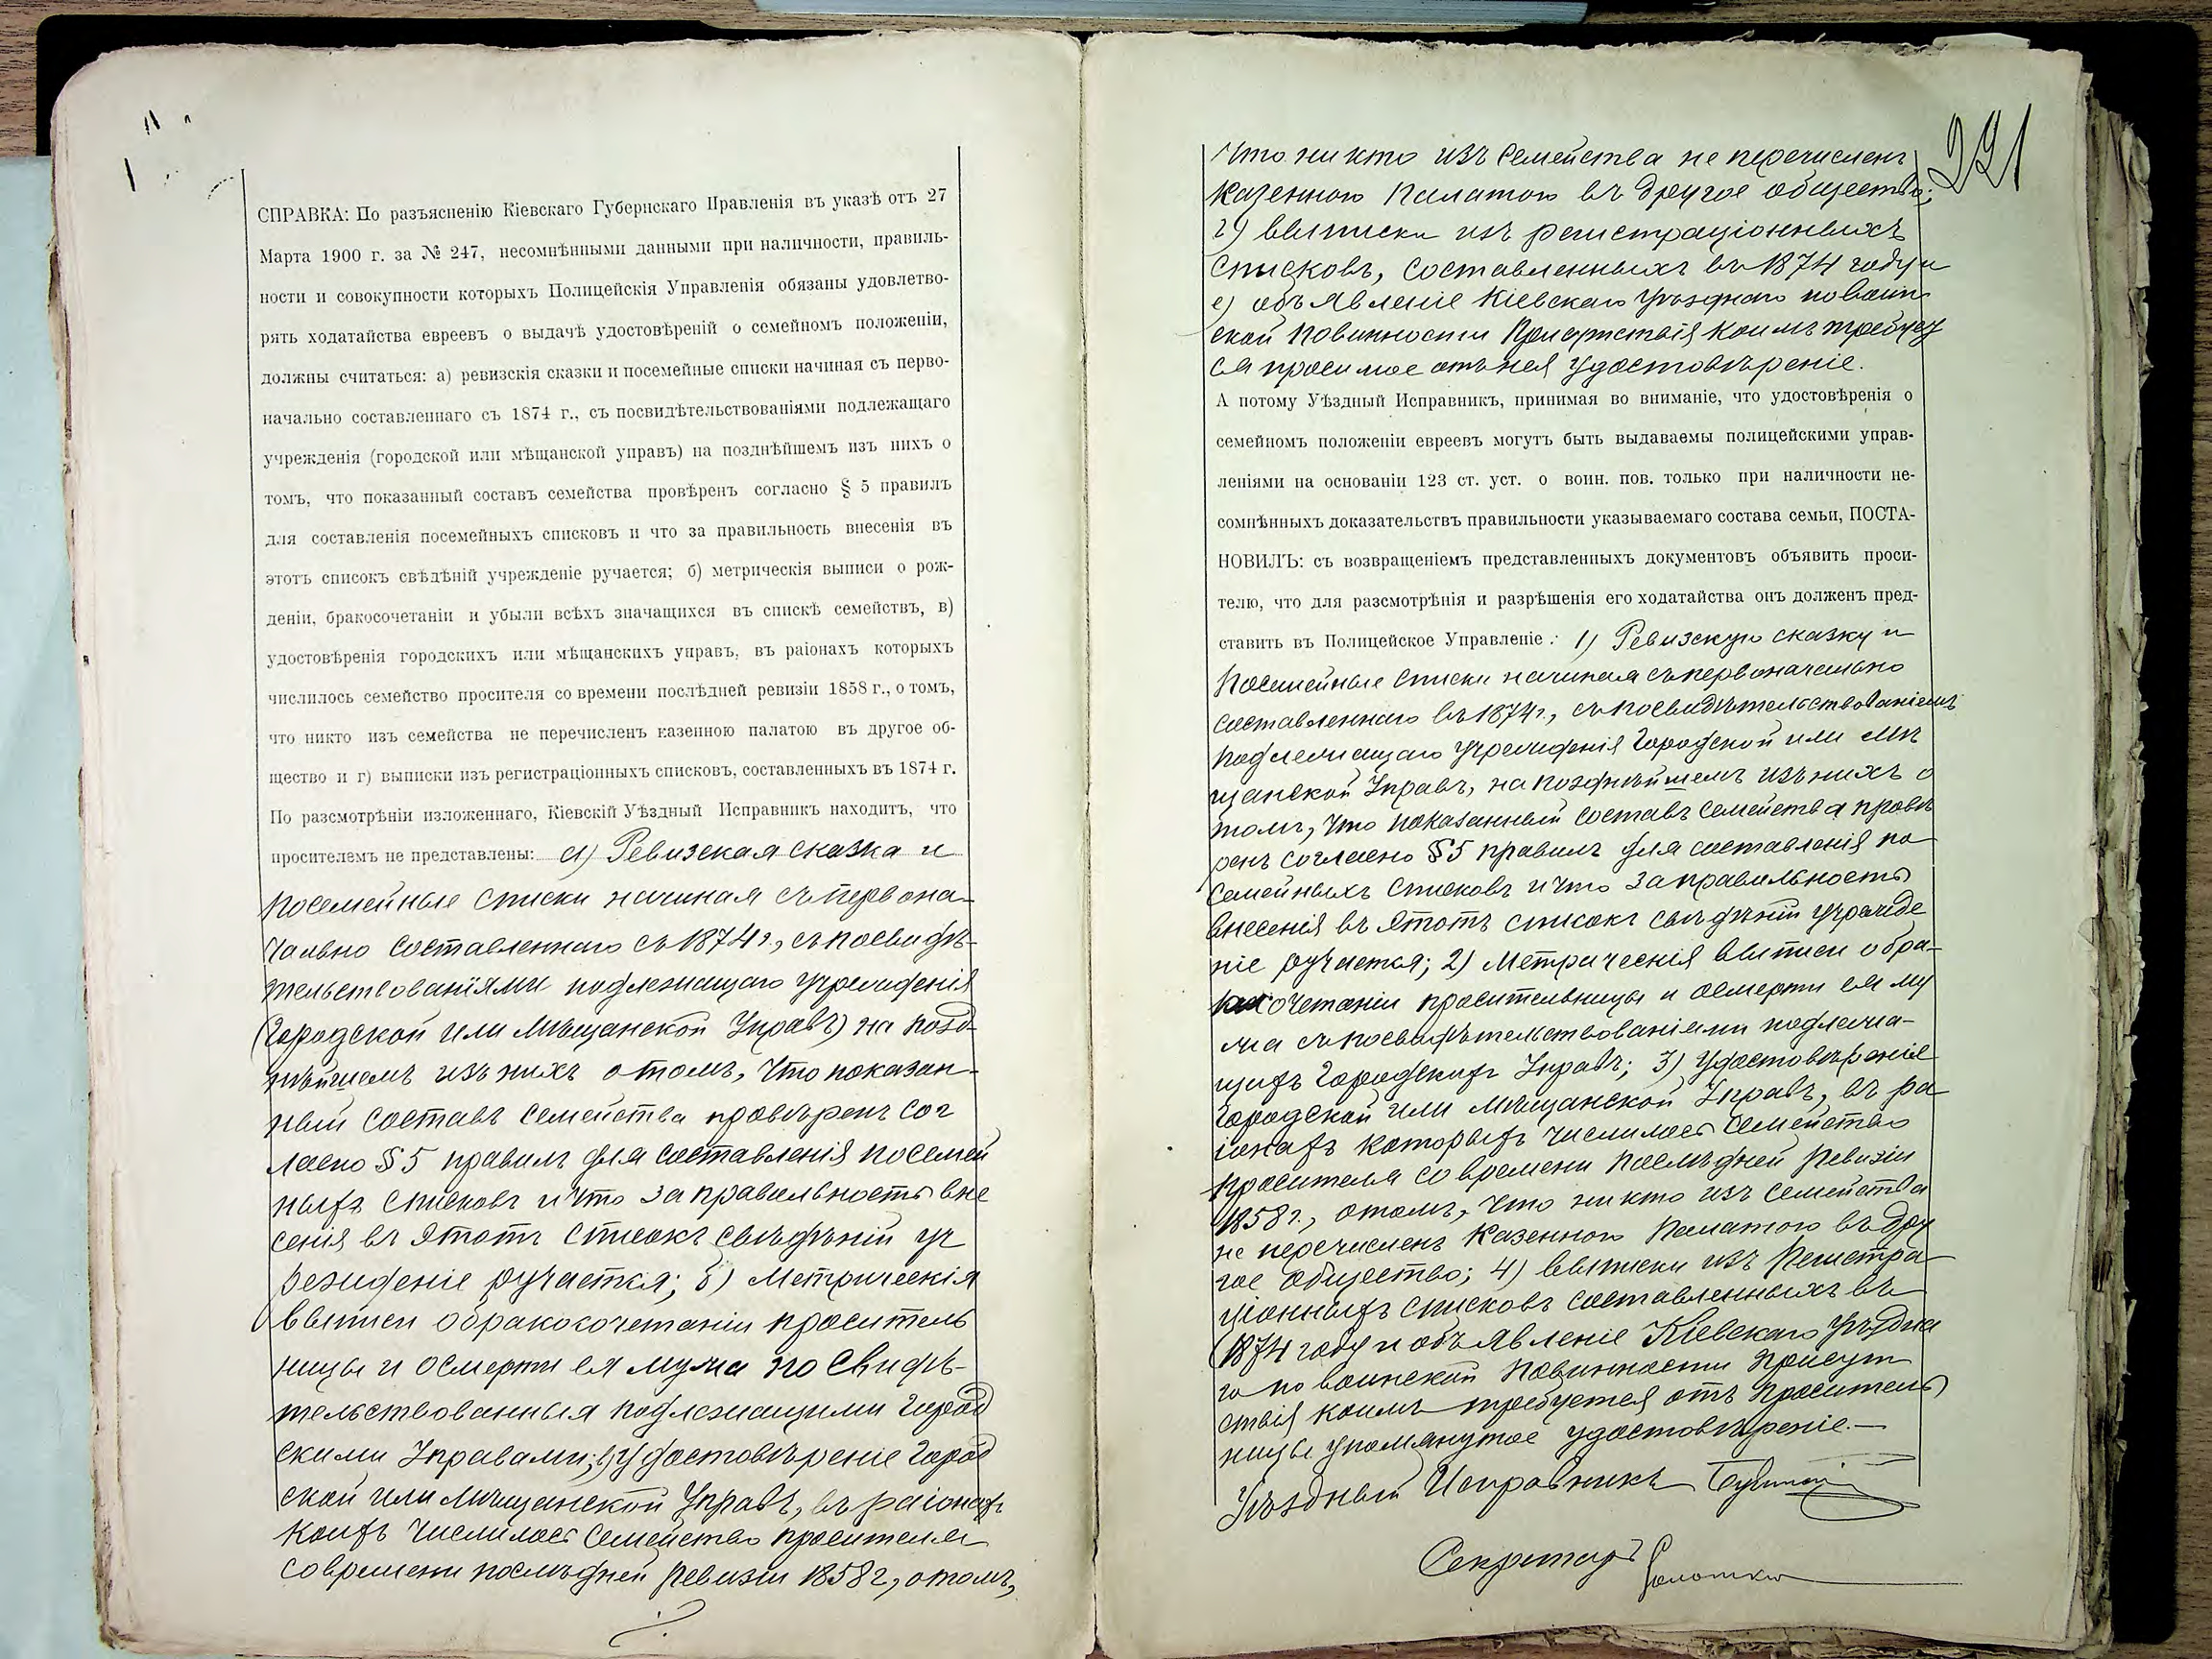 СПРАВКА: По разъясненію Кіевскаго Губернскаго Правленія въ указѣ отъ 27
Марта 1900 г. за № 247, несомнѣнными данными при наличности, правиль-
ности и совокупности которыхъ Полицейскія Управленія обязаны удовлетво-
рять ходатайства евреевъ о выдачѣ удостовѣреній о семейномъ положеніи,
должны считаться: а) ревизскія сказки и посемейные списки начиная съ перво-
начально составленнаго съ 1874 г., съ посвидѣтельствованіями подлежащаго
учрежденія (городской или мѣщанской управъ) на позднѣйшемъ изъ нихъ о
томъ, что показанный составъ семейства провѣренъ согласно § 5 правилъ
для составленія посемейныхъ списковъ и что за правильность внесенія въ
этотъ списокъ свѣдѣній учрежденіе ручается; б) метрическія выписи о рож-
деніи, бракосочетаніи и убыли всѣхъ значащихся въ спискѣ семействъ, в)
удостовѣренія городскихъ или мѣщанскихъ управъ, въ раіонахъ которыхъ
числилось семейство просителя со времени послѣдней ревизіи 1858 г., о томъ,
что никто изъ семейства не перечисленъ казенною палатою въ другое об-
щество и г) выписки изъ регистраціонныхъ списковъ, составленныхъ въ 1874 г.
По разсмотрѣніи изложеннаго, Кіевскій Уѣздный Исправникъ находитъ, что
просителемъ не представлены: а) Ревизская сказка и
посемейные списки начиная съ первона-
чально составленнаго съ 1874 г., съ посвидѣ-
тельствованіями подлежащаго учрежденія
(городской или Мѣщанской Управъ) на позд-
нѣйшемъ изъ нихъ о томъ, что показан-
ный составъ семейства провѣренъ сог
ласно § 5 правилъ для составленія посемей
ныхъ списковъ и что за правильность вне
сенія въ этотъ списокъ свѣдѣній уч
режденіе ручается; б) Метрическія
выписи о бракосочетаніи проситель
ницы и о смерти ея мужа посвидѣ-
тельствованныя подлежащими Город
скими Управами; в) Удостовѣреніе Город
ской или Мѣщанской Управъ, въ раіонахъ
коихъ числилось семейство просителя
со времени послѣдней ревизіи 1858 г., о томъ,
221
что никто изъ семейства не перечисленъ
Казенною Палатою въ другое общество;
г) выписки изъ регистраціонныхъ
списковъ, составленныхъ въ 1874 году и
е) объявленіе Кіевскаго Уѣзднаго по воин
ской повинности Присутствія коимъ требует
ся просимое отъ нея удостовѣреніе.
А потому Уѣздный Исправникъ, принимая во вниманіе, что удостовѣренія о
семейномъ положеніи евреевъ могутъ быть выдаваемы полицейскими управ-
леніями на основаніи 123 ст. уст. о воин. пов. только при наличности не-
сомнѣнныхъ доказательствъ правильности указываемаго состава семьи, ПОСТА-
НОВИЛЪ: съ возвращеніемъ представленныхъ документовъ объявить проси-
телю, что для разсмотрѣнія и разрѣшенія его ходатайства онъ долженъ пред-
ставить въ Полицейское Управленіе: 1) Ревизскую сказку и
Посемейные списки начиная съ первоначально
составленнаго въ 1874 г., съ посвидѣтельствованіемъ
подлежащаго учрежденія Городской или Мѣ
щанской Управъ, на позднѣйшемъ изъ нихъ о
томъ, что показанный составъ семейства провѣ
ренъ согласно § 5 правилъ для составленія по
семейныхъ списковъ и что за правильность
внесенія въ этотъ списокъ свѣдѣній учрежде
ніе ручается; 2) Метрическія выписи о бра-
косочетаніи просительницы и о смерти ея му
жа съ посвидѣтельствованіями подлежа-
щихъ Городскихъ Управъ; 3) Удостовѣреніе
Городской или Мѣщанской Управъ, въ ра
іонахъ которыхъ числилось семейство
просителя со времени послѣдней ревизіи
1858 г., о томъ, что никто изъ семейства
не перечисленъ Казенною Палатою въ дру
гое общество; 4) выписки изъ Регистра
ціонныхъ списковъ составленныхъ въ
1874 году и объявленіе Кіевскаго Уѣздна
го по воинской повинности Присут
ствія коимъ требуется отъ проситель
ницы упомянутое удостовѣреніе.—
Уѣздный Исправникъ
Секретарь